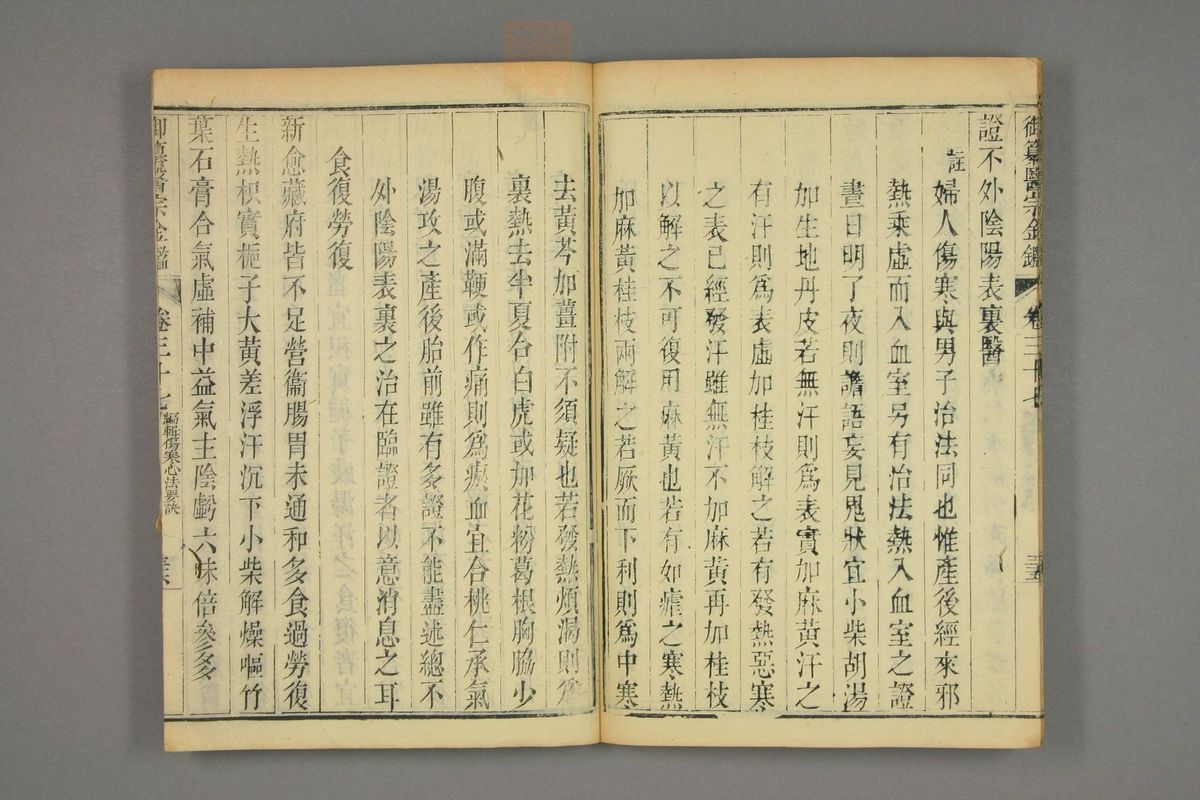 御纂醫宗金鑑 卷三十七 三五
證不外陰陽表裏醫
註婦人傷寒與男子治法同也惟產後經來邪
熱乘虛而入血室另有治法熱入血室之證
晝日明了夜則譫語妄見鬼狀宜小柴胡湯
加生地丹皮若無汗則爲表實加麻黃汗之
有汗則爲表虛加桂枝解之若有發熱惡寒
之表已經發汗雖無汗不加麻黃再加桂枝
以解之不可復用麻黃也若有如瘧之寒熱
加麻黃桂枝兩解之若厥而下利則爲中寒
去黃芩加薑附不須疑也若發熱煩渴則爲
裏熱去半夏合白虎或加花粉葛根胸脇少
腹或滿鞕或作痛則爲瘀血宜合桃仁承氣
湯攻之產後胎前雖有多證不能盡述總不
外陰陽表裏之治在臨證者以意消息之耳
食復勞復
新愈藏府皆不足營衞腸胃未通和多食過勞復
生熱枳實梔子大黃差浮汗沉下小柴解燥嘔竹
葉石膏合氣虛補中益氣主陰虧六味倍參多
御纂醫宗金鑑 卷三十七 編輯傷寒心法要訣 三六